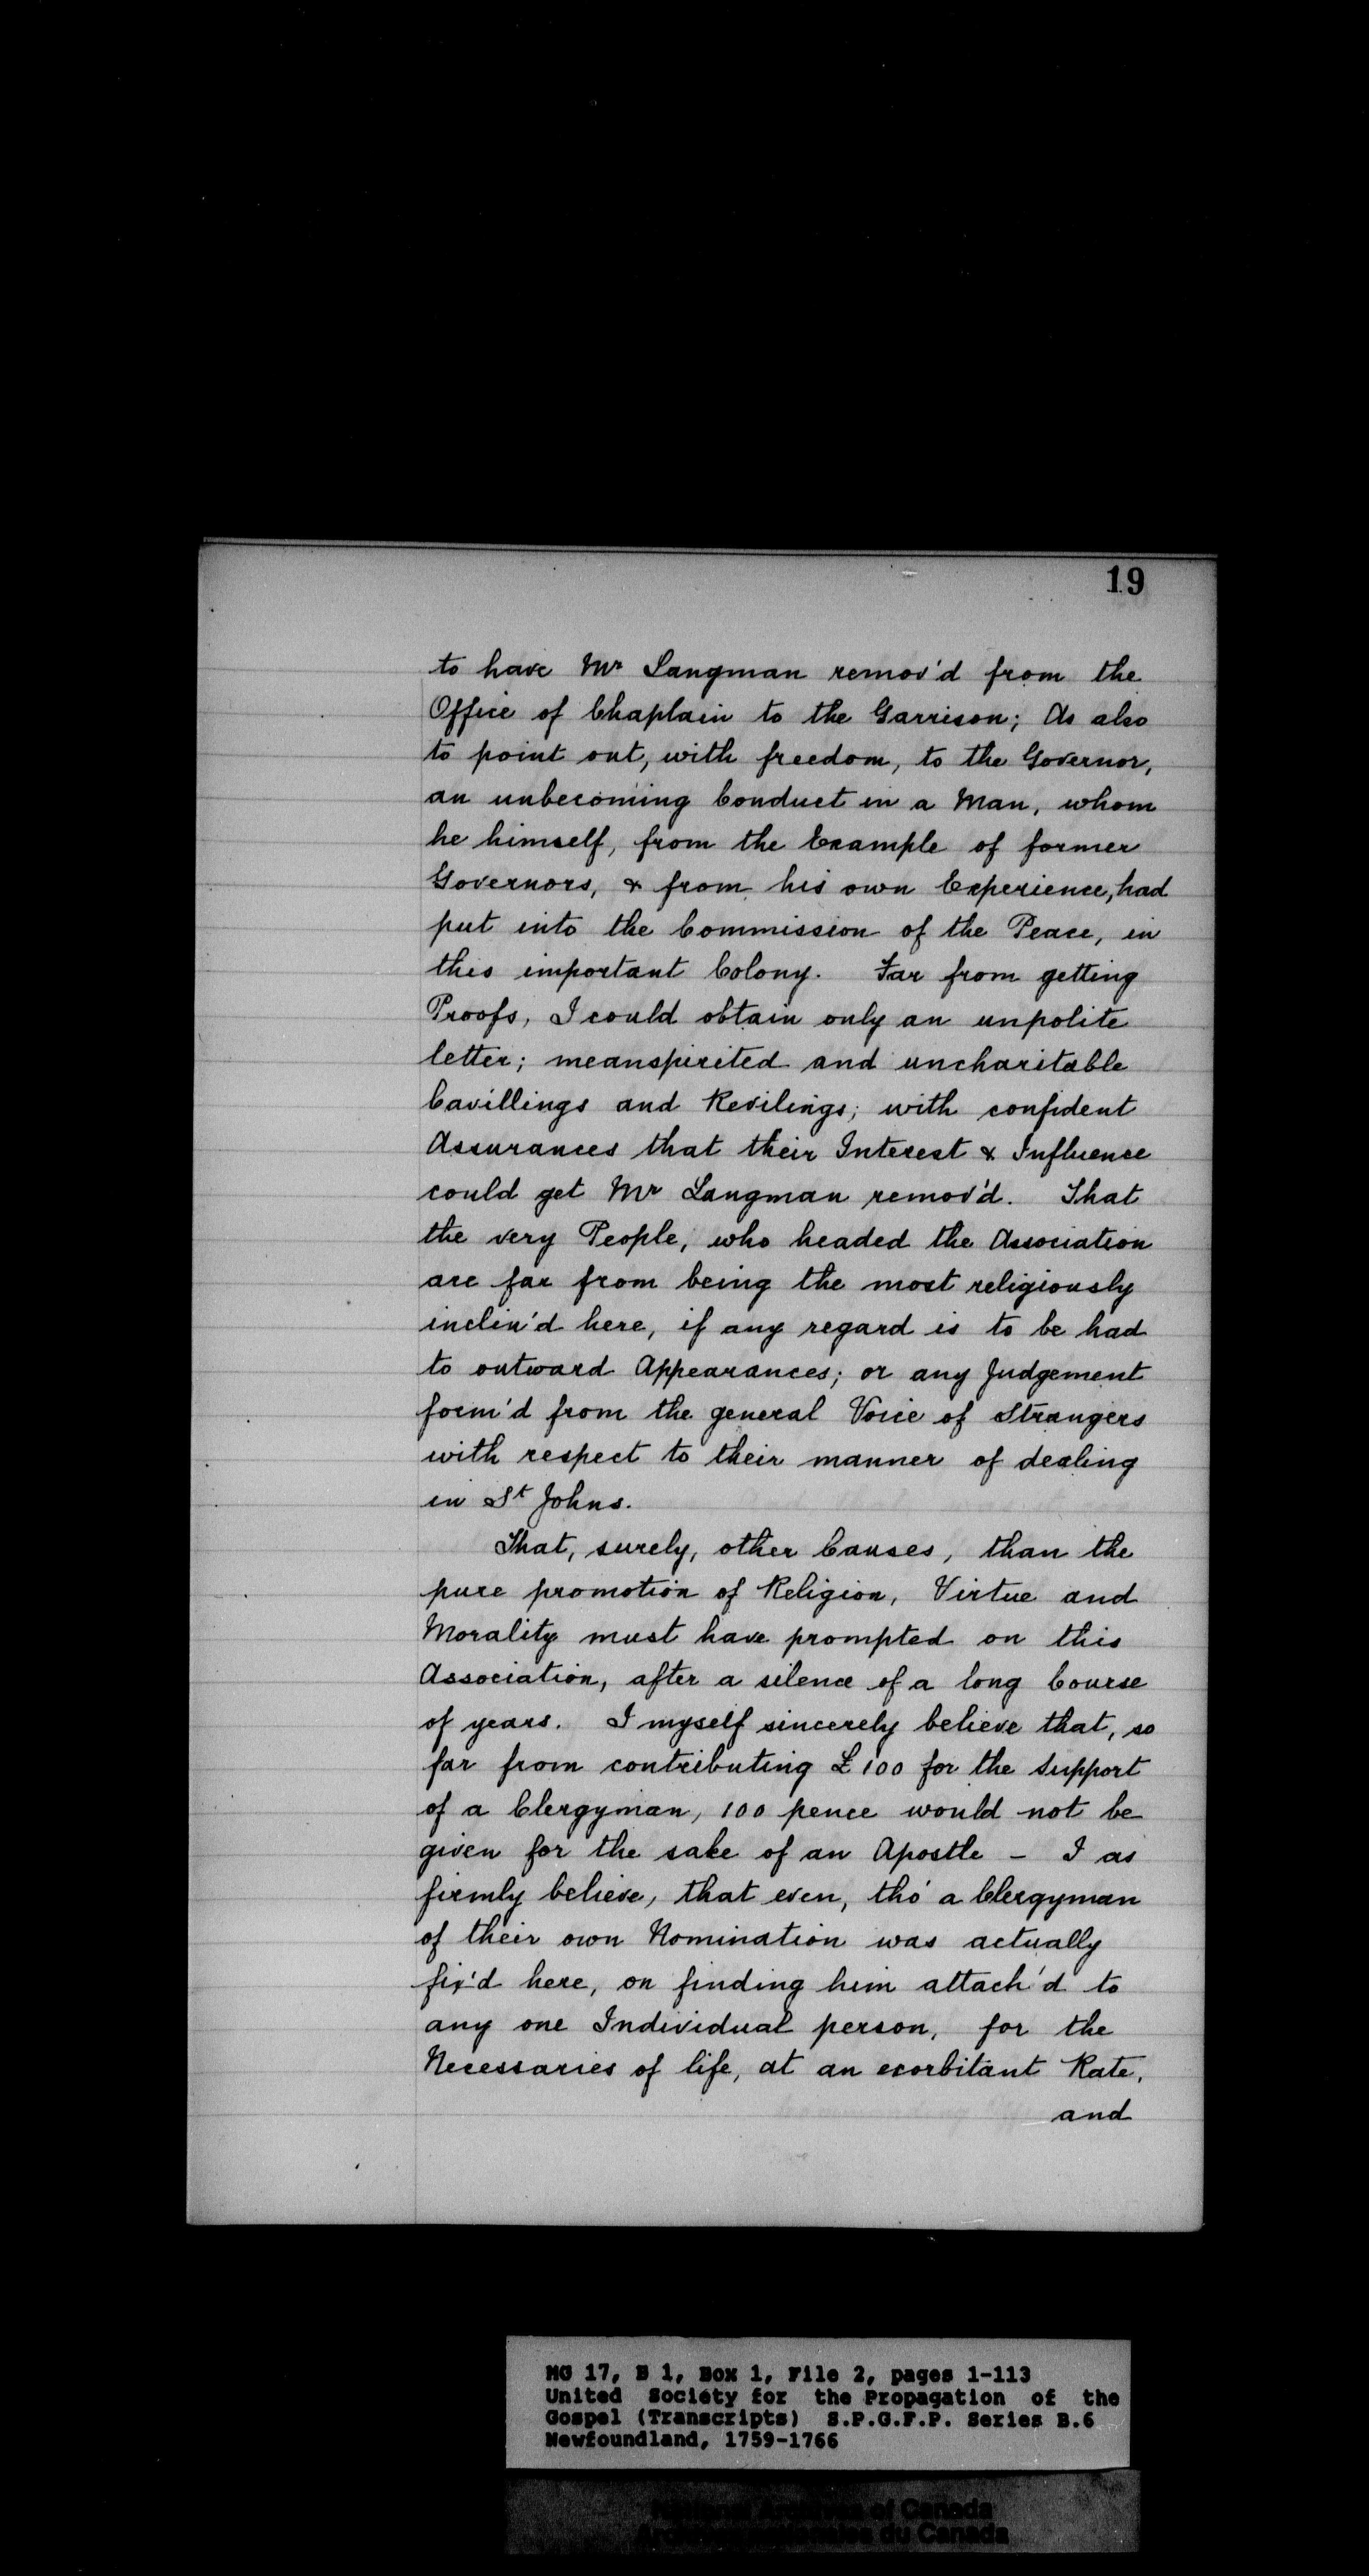 19
to have Mr Langman remov'd from the
Office of Chaplain to the Garrison; As also
to point out, with freedom, to the Governor,
an unbecoming Conduct in a Man, whom
he himself, from the Example of former
Governors, & from his own Experience, had
put into the Commission of the Peace, in
this important Colony. Far from getting
Proofs, I could obtain only an unpolite
letter; meanspirited and uncharitable
Cavillings and Revilings; with confident
Assurances that their Interest & Influence
could get Mr Langman remov'd. That
the very People, who headed the Association
are far from being the most religiously
inclin'd here, if any regard is to be had
to outward Appearances; or any Judgement
form'd from the general Voice of Strangers
with respect to their manner of dealing
in St Johns.
That, surely, other Causes, than the
pure promotion of Religion, Virtue and
Morality must have prompted on this
Association, after a silence of a long Course
of years. I myself sincerely believe that, so
far from contributing £100 for the Support
of a Clergyman, 100 pence would not be
given for the sake of an Apostle - I as
firmly believe, that even, tho' a Clergyman
of their own Nomination was actually
fix'd here, on finding him attach'd to
any one Individual person, for the
Necessaries of life, at an exorbitant Rate,
and
MG 17, B 1, Box 1, File 2, pages 1-113
United Society for the Propagation of the
Gospel (Transcripts) S.P.G.F.P. Series B.6
Newfoundland, 1759-1766
National Archives of Canada
Archives nationales du Canada